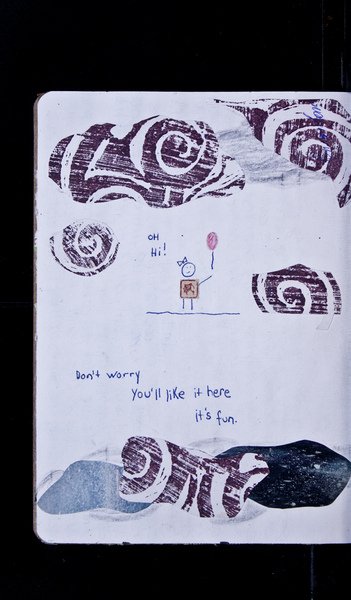 OH
Hi!
Don't worry
You'll like it here
it's fun.